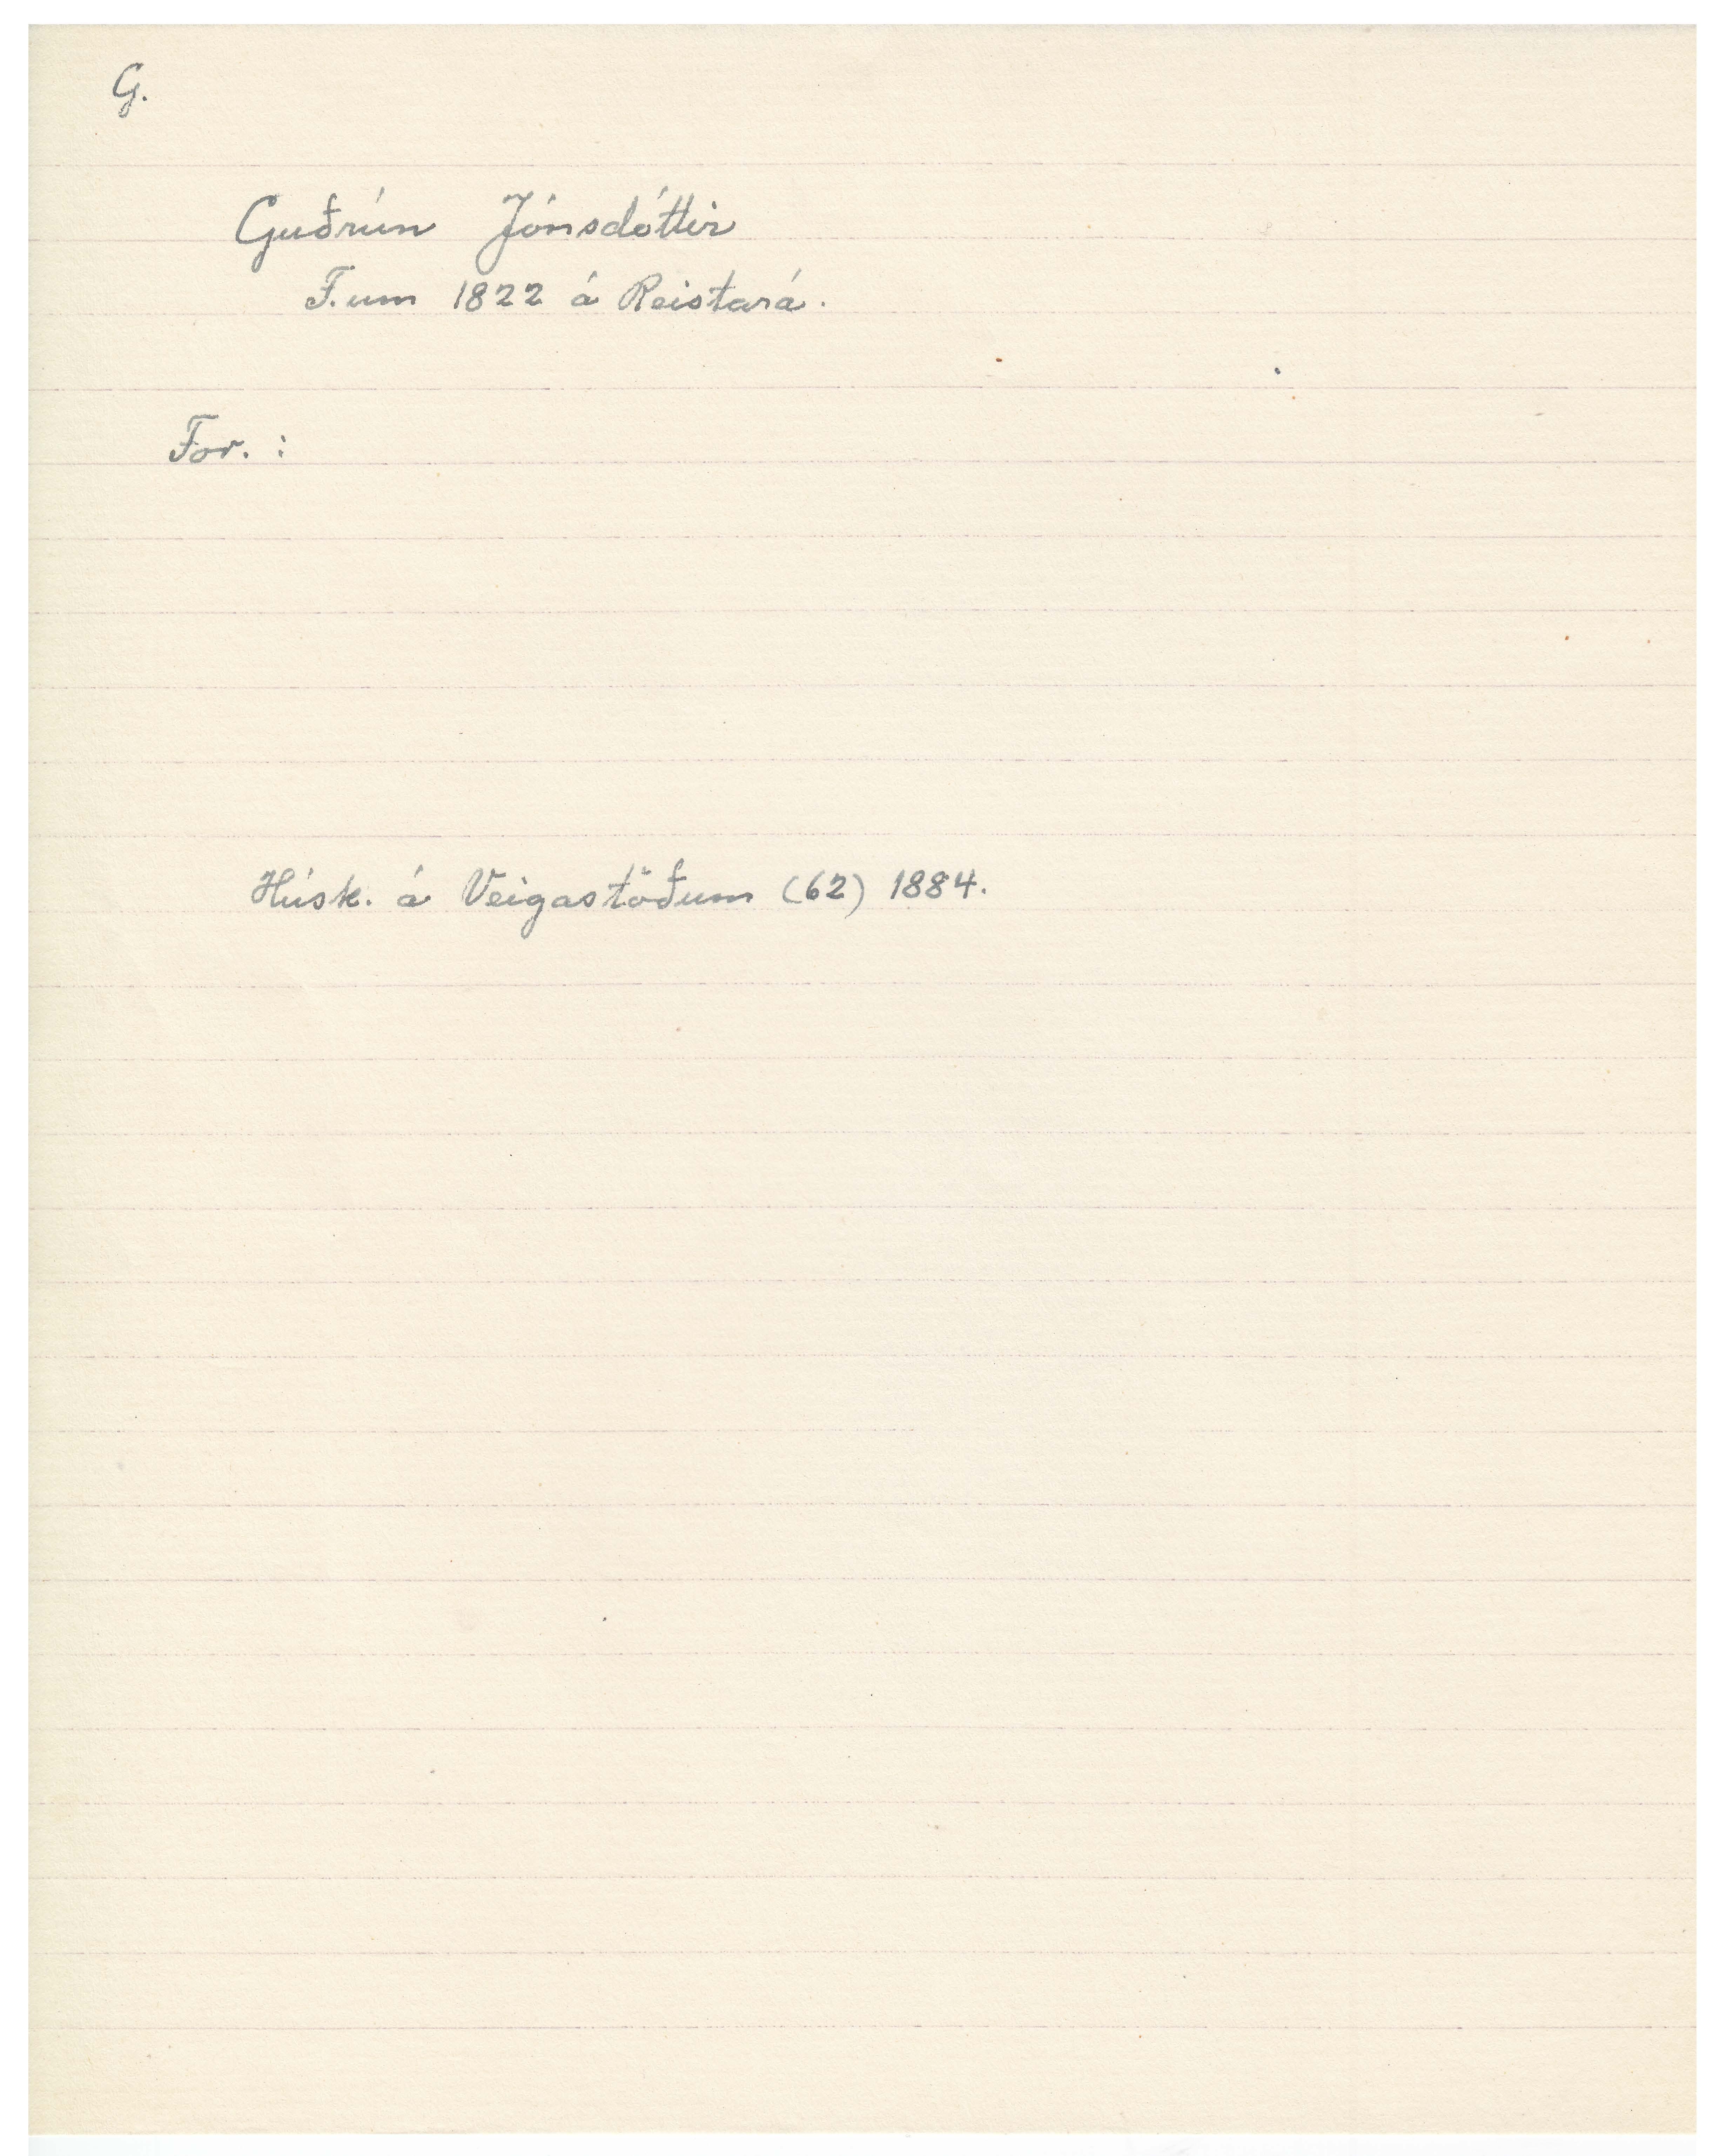 G.
Guðrún Jónsdóttir
F. um 1822 á Reistará.
For. :
Húsk. á Veigastöðum (62) 1884.